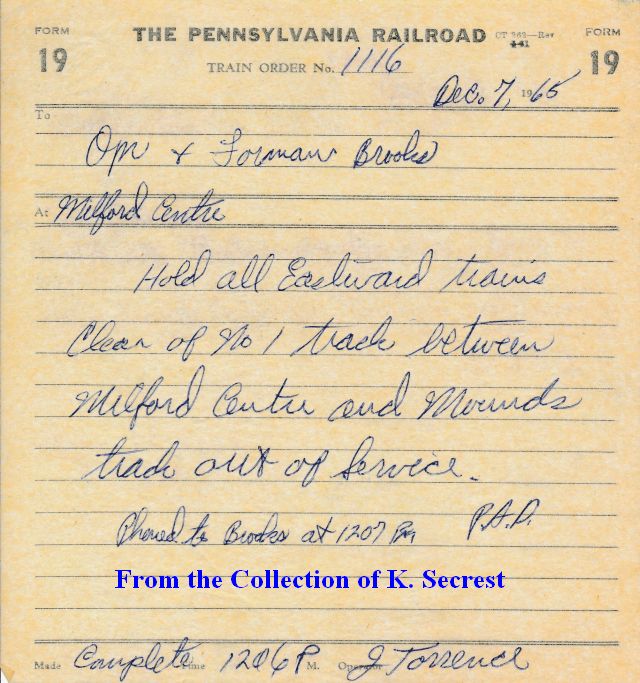 FORM 19 THE PENNSYLVANIA RAILROAD CT 262—Rev FORM 19
4-41
TRAIN ORDER No. 1116
Dec. 7, 1965
To
Opr & Forman Brooks
At Milford Centre
Hold all Eastward trains
Clear of No 1 track between
Milford Centre and Mounds
track out of Service.
Phoned to Brooks at 1207 Pm P.A.D.
From the Collection of K. Secrest
Made Complete Time 1206 P M. Operator J Torrence